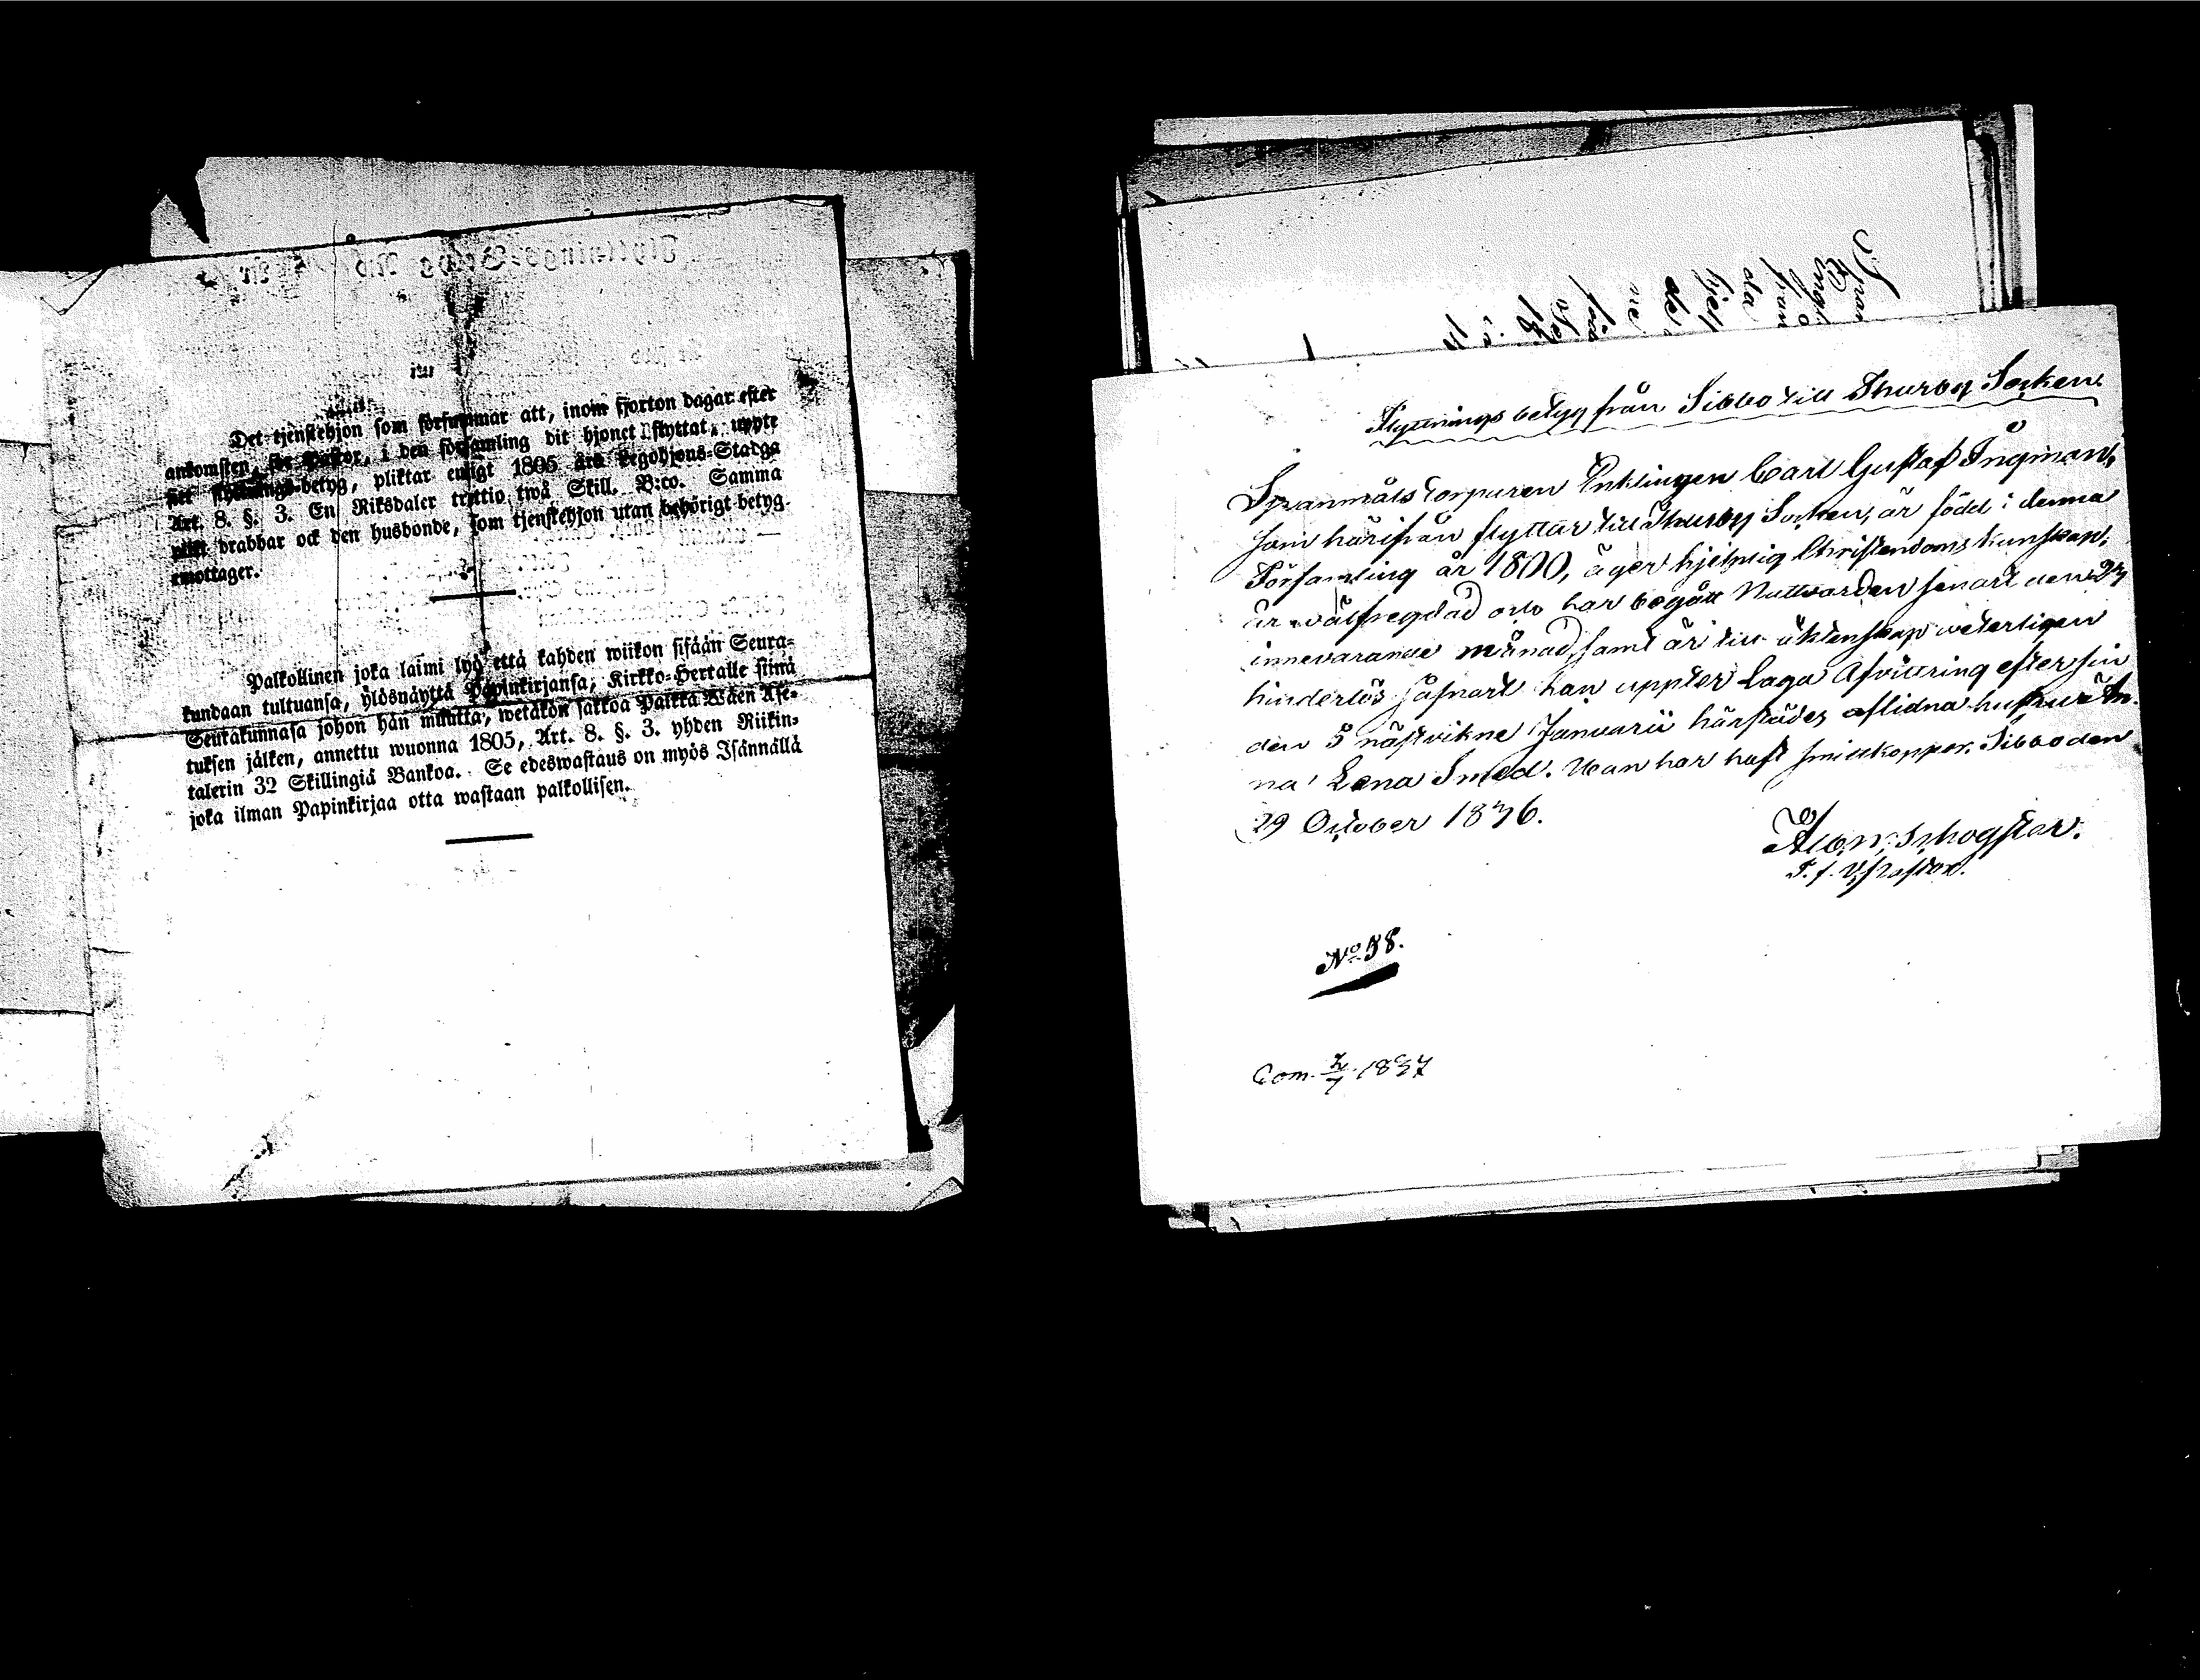 Det tjenstehjon som försummar att, inom fjorton dagar efter
ankomsten, för Pastor, i den församling dit hjonet flyttat, uppte
sitt flyttnings-betyg, pliktar enligt 1805 års Legohjons-Stadga
Art. 8. §. 3. En Riksdaler trettio två Skill. B:co. Samma
plikt drabbar ock den husbonde, som tjenstehjon utan behörigt betyg
emottager.
Palkollinen joka laimi lyö että kahden wiikon sisään Seura-
kundaan tultuansa, ylösnäyttä Papinkirjansa, Kirkko-Herralle siinä
Seurakunnasa johon hän muutta, wetäkön sakkoa Palkka Wäen Ase-
tuksen jälken, annettu wuonna 1805, Art. 8. §. 3. yhden Riikin-
talerin 32 Skillingiä Bankoa. Se edeswastaus on myös Isännällä
joka ilman Papinkirjaa otta wastaan palkollisen.
Flyttnings betyg från Sibbo till Thusby Socken.
Spanmåls Torparen Enklingen Carl Gustaf Ingman,
som härifrån flyttar till Thusby Socken, är född i denna
Församling år 1800, äger hjelplig Christendoms kunskap,
är wälfregdad och har begått Nattvarden senast den 23
innevarande månad, samt är till äktenskap weterligen
hinderlös, såsnart han uppter laga Afvittring efter sin
den 5 nästvikne Januarii härstädes aflidna hustru An-
na Lena Smed. Han har haft smittkoppor. Sibbo den
29 October 1836.
Alb. N. Schogster.
T. f. V. Pastor.
No 58.
Com. 1837